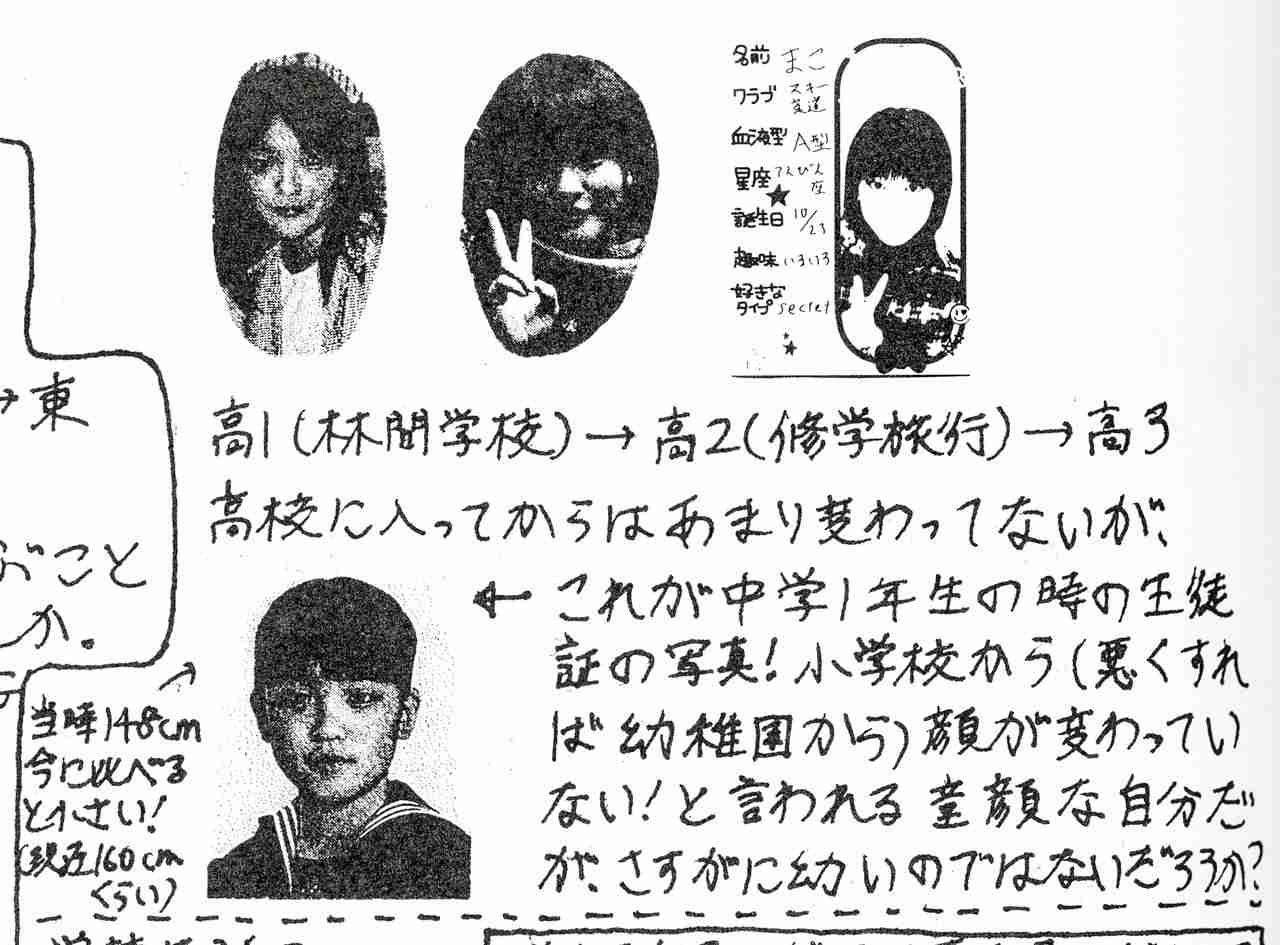 名前 まこ
クラブ スキー
友道
血液型 A型
星座 てんびん
座
誕生日 10/23
趣味 いろいろ
好きな
タイプ secret
高1(林間学校)→高2(修学旅行)→高3
高校に入ってからはあまり変わってないが、
← これが中学1年生の時の生徒
証の写真!小学校から(悪くすれ
ば幼稚園から)顔が変わってい
ない!と言われる童顔な自分だ
が、さすがに幼いのではないだろうか?
→東
ぶこと
か。
当時148cm
今に比べる
と小さい!
(現在160cm
くらい)